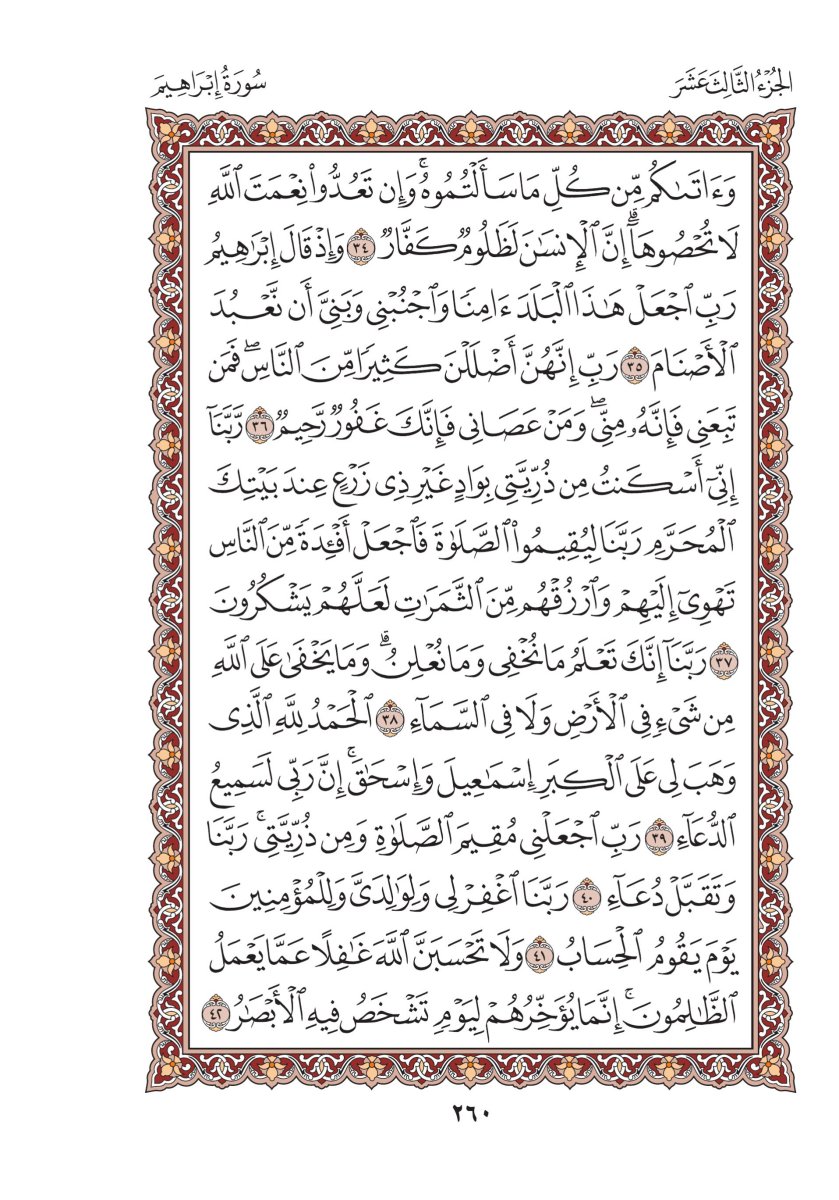 الجُزْءُ الثَّالِثَ عَشَرَ
سُورَةُ إِبْرَاهِيمَ
وَءَاتَىٰكُم مِّن كُلِّ مَا سَأَلْتُمُوهُۚ وَإِن تَعُدُّواْ نِعْمَتَ ٱللَّهِ
لَا تُحْصُوهَآۗ إِنَّ ٱلْإِنسَٰنَ لَظَلُومٌ كَفَّارٌ ٣٤ وَإِذْ قَالَ إِبْرَٰهِيمُ
رَبِّ ٱجْعَلْ هَٰذَا ٱلْبَلَدَ ءَامِنًا وَٱجْنُبْنِي وَبَنِيَّ أَن نَّعْبُدَ
ٱلْأَصْنَامَ ٣٥ رَبِّ إِنَّهُنَّ أَضْلَلْنَ كَثِيرًا مِّنَ ٱلنَّاسِۖ فَمَن
تَبِعَنِي فَإِنَّهُۥ مِنِّيۖ وَمَنْ عَصَانِي فَإِنَّكَ غَفُورٌ رَّحِيمٌ ٣٦ رَّبَّنَآ
إِنِّيٓ أَسْكَنتُ مِن ذُرِّيَّتِي بِوَادٍ غَيْرِ ذِي زَرْعٍ عِندَ بَيْتِكَ
ٱلْمُحَرَّمِ رَبَّنَا لِيُقِيمُواْ ٱلصَّلَوٰةَ فَٱجْعَلْ أَفْـِٔدَةً مِّنَ ٱلنَّاسِ
تَهْوِيٓ إِلَيْهِمْ وَٱرْزُقْهُم مِّنَ ٱلثَّمَرَٰتِ لَعَلَّهُمْ يَشْكُرُونَ
٣٧ رَبَّنَآ إِنَّكَ تَعْلَمُ مَا نُخْفِي وَمَا نُعْلِنُۗ وَمَا يَخْفَىٰ عَلَى ٱللَّهِ
مِن شَيْءٍ فِي ٱلْأَرْضِ وَلَا فِي ٱلسَّمَآءِ ٣٨ ٱلْحَمْدُ لِلَّهِ ٱلَّذِي
وَهَبَ لِي عَلَى ٱلْكِبَرِ إِسْمَٰعِيلَ وَإِسْحَٰقَۚ إِنَّ رَبِّي لَسَمِيعُ
ٱلدُّعَآءِ ٣٩ رَبِّ ٱجْعَلْنِي مُقِيمَ ٱلصَّلَوٰةِ وَمِن ذُرِّيَّتِيۚ رَبَّنَا
وَتَقَبَّلْ دُعَآءِ ٤٠ رَبَّنَا ٱغْفِرْ لِي وَلِوَٰلِدَيَّ وَلِلْمُؤْمِنِينَ
يَوْمَ يَقُومُ ٱلْحِسَابُ ٤١ وَلَا تَحْسَبَنَّ ٱللَّهَ غَٰفِلًا عَمَّا يَعْمَلُ
ٱلظَّٰلِمُونَۚ إِنَّمَا يُؤَخِّرُهُمْ لِيَوْمٍ تَشْخَصُ فِيهِ ٱلْأَبْصَٰرُ ٤٢
٢٦٠